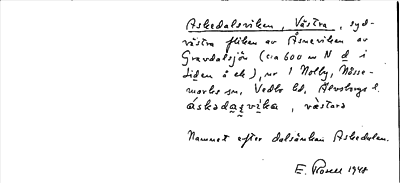 Askedalsviken, Västra, syd-
västra fliken av Åsneviken av
Gravdalsjön (ca 600 m N d i
Liden å ek), nr 1 Nolby, Nösse-
marks sn, Vedbo hd, Älvsborgs l.
áskadaʂvìka, västara
Namnet efter dalsänkan Askedalen.
E. 1948